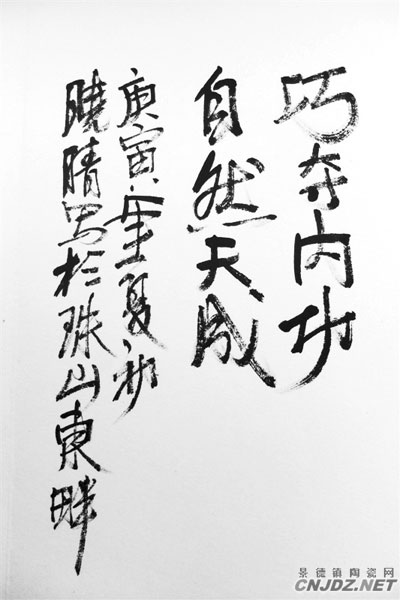 巧夺内功
自然天成
庚寅年夏初
曉晴写於珠山東畔
景德镇陶瓷网
CNJDZ.NET